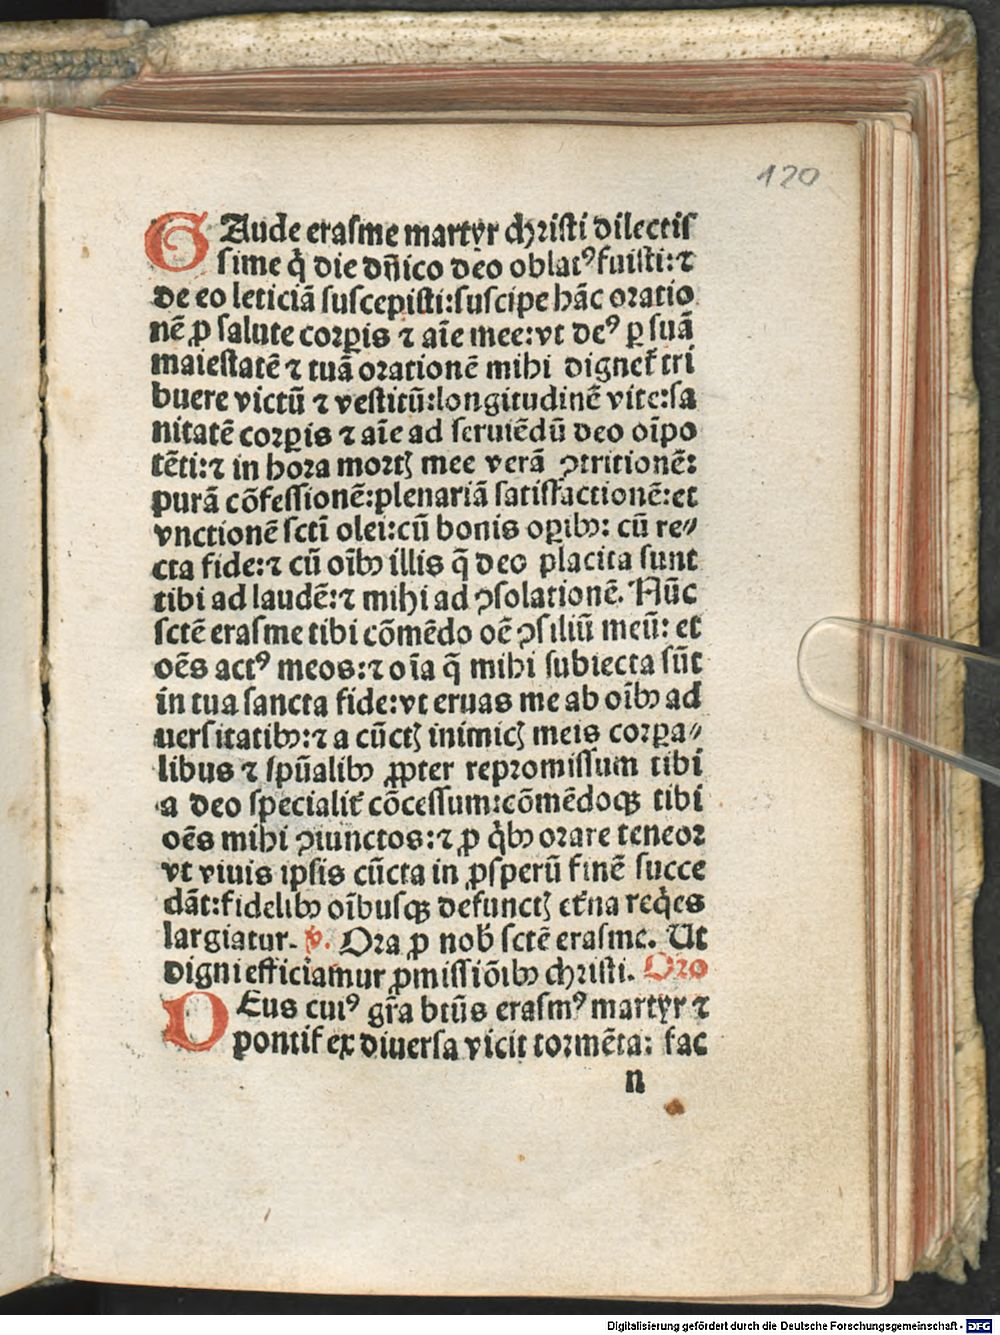 120
GAude erasme martyr christi dilectis
sime q̇ die dn̄ico deo oblatꝰ fuisti: ⁊
de eo leticiā suscepisti: suscipe hāc oratio
nē ꝓ salute corꝑis ⁊ aīe mee: vt deꝰ ꝑ suā
maiestatē ⁊ tuā orationē mihi dignet᷑ tri
buere victū ⁊ vestitū: longitudinē vite: sa
nitatē corꝑis ⁊ aīe ad seruiēdū deo oīpo
tēti: ⁊ in hora mortꝭ mee verā ꝯtritionē:
purā cōfessionē: plenariā satisfactionē: et
vnctionē sctī olei: cū bonis oꝑibꝫ: cū re⸗
cta fide: ⁊ cū oībꝫ illis q̄ deo placita sunt
tibi ad laudē: ⁊ mihi ad ꝯsolationē. Nūc
sctē erasme tibi cōmēdo oē ꝯsiliū meū: et
oēs actꝰ meos: ⁊ oīa q̄ mihi subiecta sūt
in tua sancta fide: vt eruas me ab oībꝫ ad
uersitatibꝫ: ⁊ a cūctꝭ inimicꝭ meis corꝑa⸗
libus ⁊ spūalibꝫ ꝓpter repromissum tibi
a deo specialit᷑ cōcessum: cōmēdoqꝫ tibi
oēs mihi ꝯiunctos: ⁊ ꝓ q̇bꝫ orare teneor
vt viuis ipsis cūcta in ꝓsperū finē succe
dāt: fidelibꝫ oībusqꝫ defunctꝭ et᷑na req̇es
largiatur. ℣. Ora ꝓ nob̄ sctē erasme. Ut
digni efficiamur ꝓmissiōibꝫ christi. Oro
DEus cuiꝰ gr̄a btūs erasmꝰ martyr ⁊
pontif᷑ ex diuersa vicit tormēta: fac
n
Digitalisierung gefördert durch die Deutsche Forschungsgemeinschaft - DFG